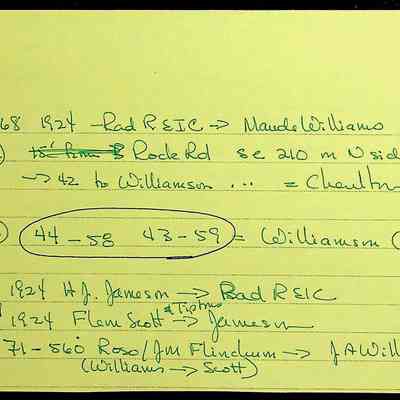 68 1924 - Rad REIC → Maude Williams
) Rock Rd se 210 m N sid
→ 42 to Williamson ... = Charlton
) 44-58 43-59 = Williamson (
1924 H.J. Jameson → Rad REIC
1924 Flem Scott & Tiptons → Jameson
71-560 Roso/JM Flinchum → JA Will
(Williams → Scott)